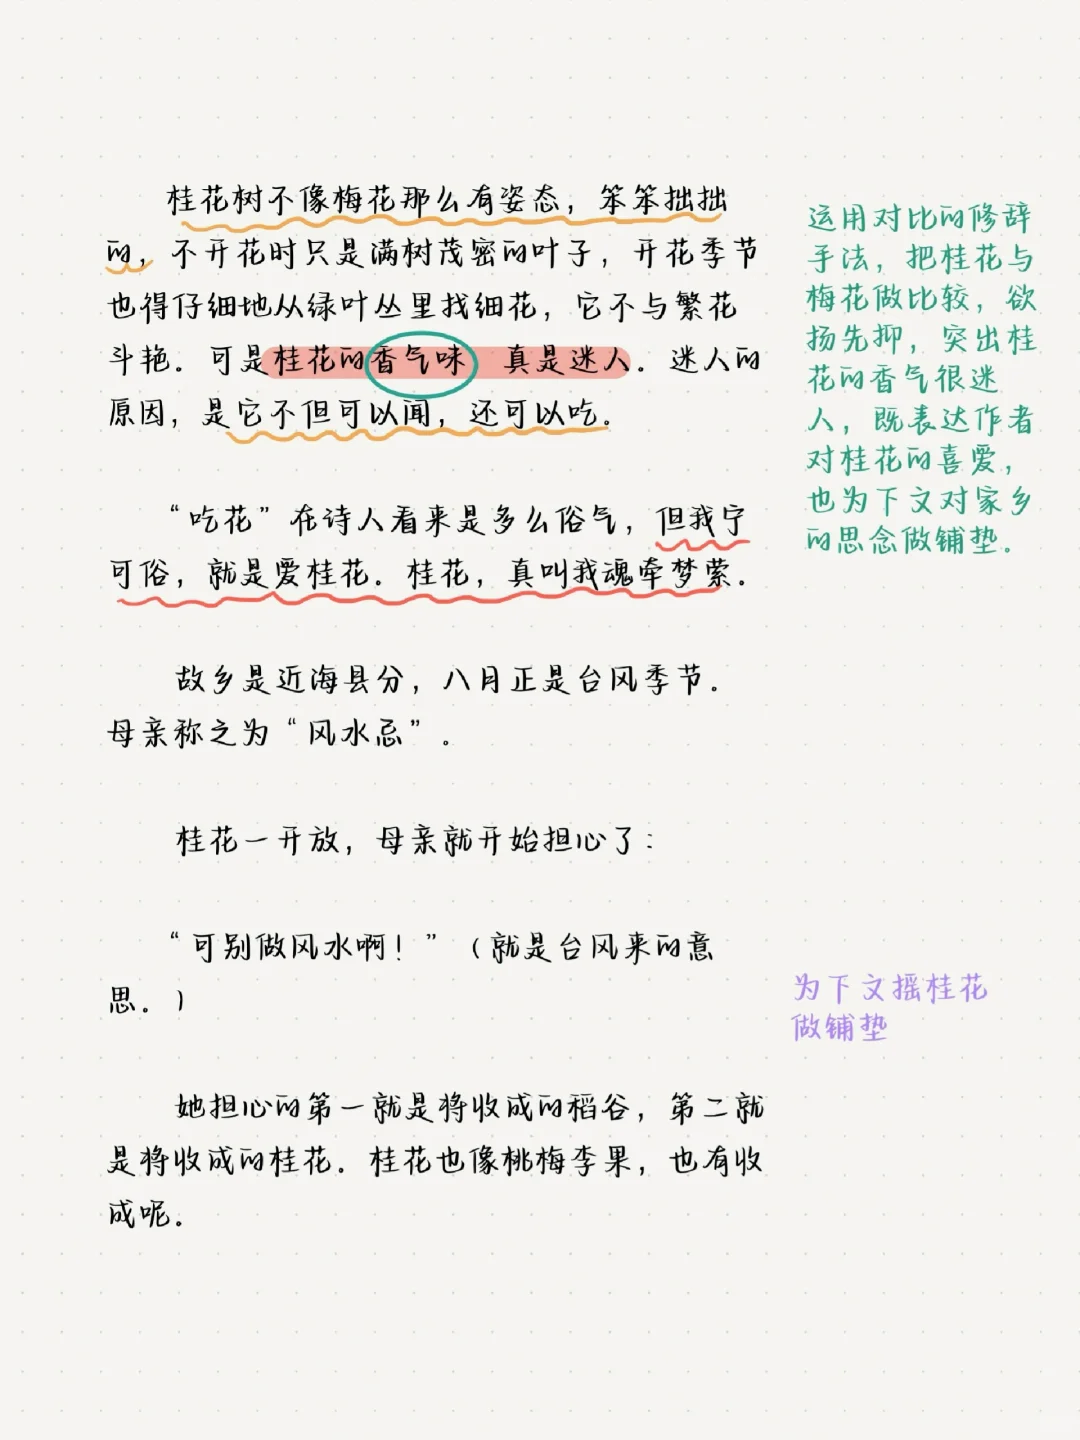 桂花树不像梅花那么有姿态，笨笨拙拙
的，不开花时只是满树茂密的叶子，开花季节
也得仔细地从绿叶丛里找细花，它不与繁花
斗艳。可是桂花的香气味 真是迷人。迷人的
原因，是它不但可以闻，还可以吃。
“吃花”在诗人看来是多么俗气，但我宁
可俗，就是爱桂花。桂花，真叫我魂牵梦萦。
故乡是近海县分，八月正是台风季节。
母亲称之为“风水忌”。
桂花一开放，母亲就开始担心了：
“可别做风水啊！”（就是台风来的意
思。）
她担心的第一就是将收成的稻谷，第二就
是将收成的桂花。桂花也像桃梅李果，也有收
成呢。
运用对比的修辞
手法，把桂花与
梅花做比较，欲
扬先抑，突出桂
花的香气很迷
人，既表达作者
对桂花的喜爱，
也为下文对家乡
的思念做铺垫。
为下文摇桂花
做铺垫